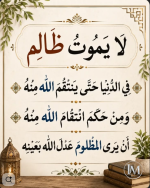 لَا يَمُوتُ ظَالِم
فِي الدُّنْيَا حَتَّى يَنْتَقِمَ اللّٰه مِنْهُ
وَمِنْ حَكَمِ انْتِقَامِ اللّٰه مِنْهُ
أَن يَرَى المَظْلُومَ عَدْلَ اللّٰه بِعَيْنِهِ